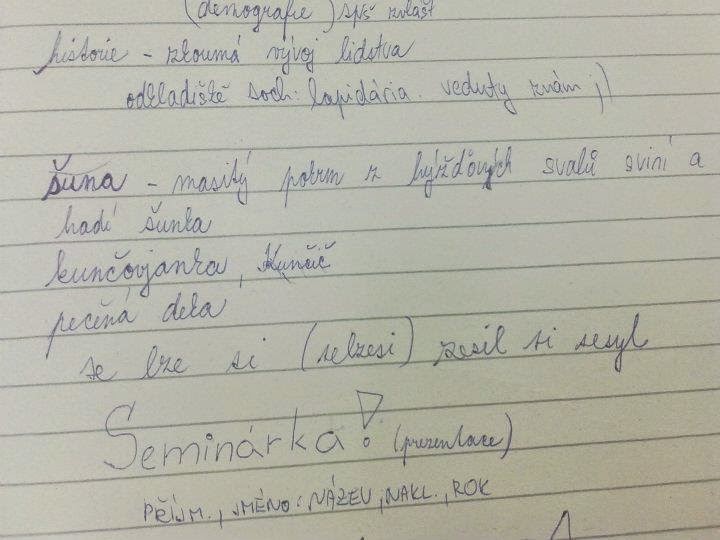 (demografie) spš zvlášť
historie - zkoumá vývoj lidstva
odkladiště soch: lapidária. veduty znám ;)
šuna - masitý pokrm z hýžďových svalů sviní a
hadí šunka
kunčovjanka, Kunčič
pečená deka
se lze si (selzesi) zesil si sesyl
Seminárka! (prezentace)
PŘÍJM., JMÉNO: NÁZEV, NAKL., ROK